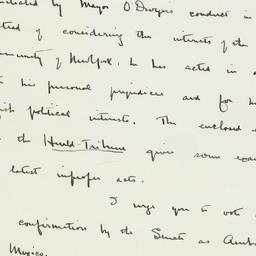 by Mayor O'Dwyers conduct in
of considering the interests of the
of New York, he has acted in
his personal prejudices and for his
political interests. The enclosed
the Herald-Tribune gives some
latest improper acts.
I urge you to vote
confirmation by the Senate as
Mexico.